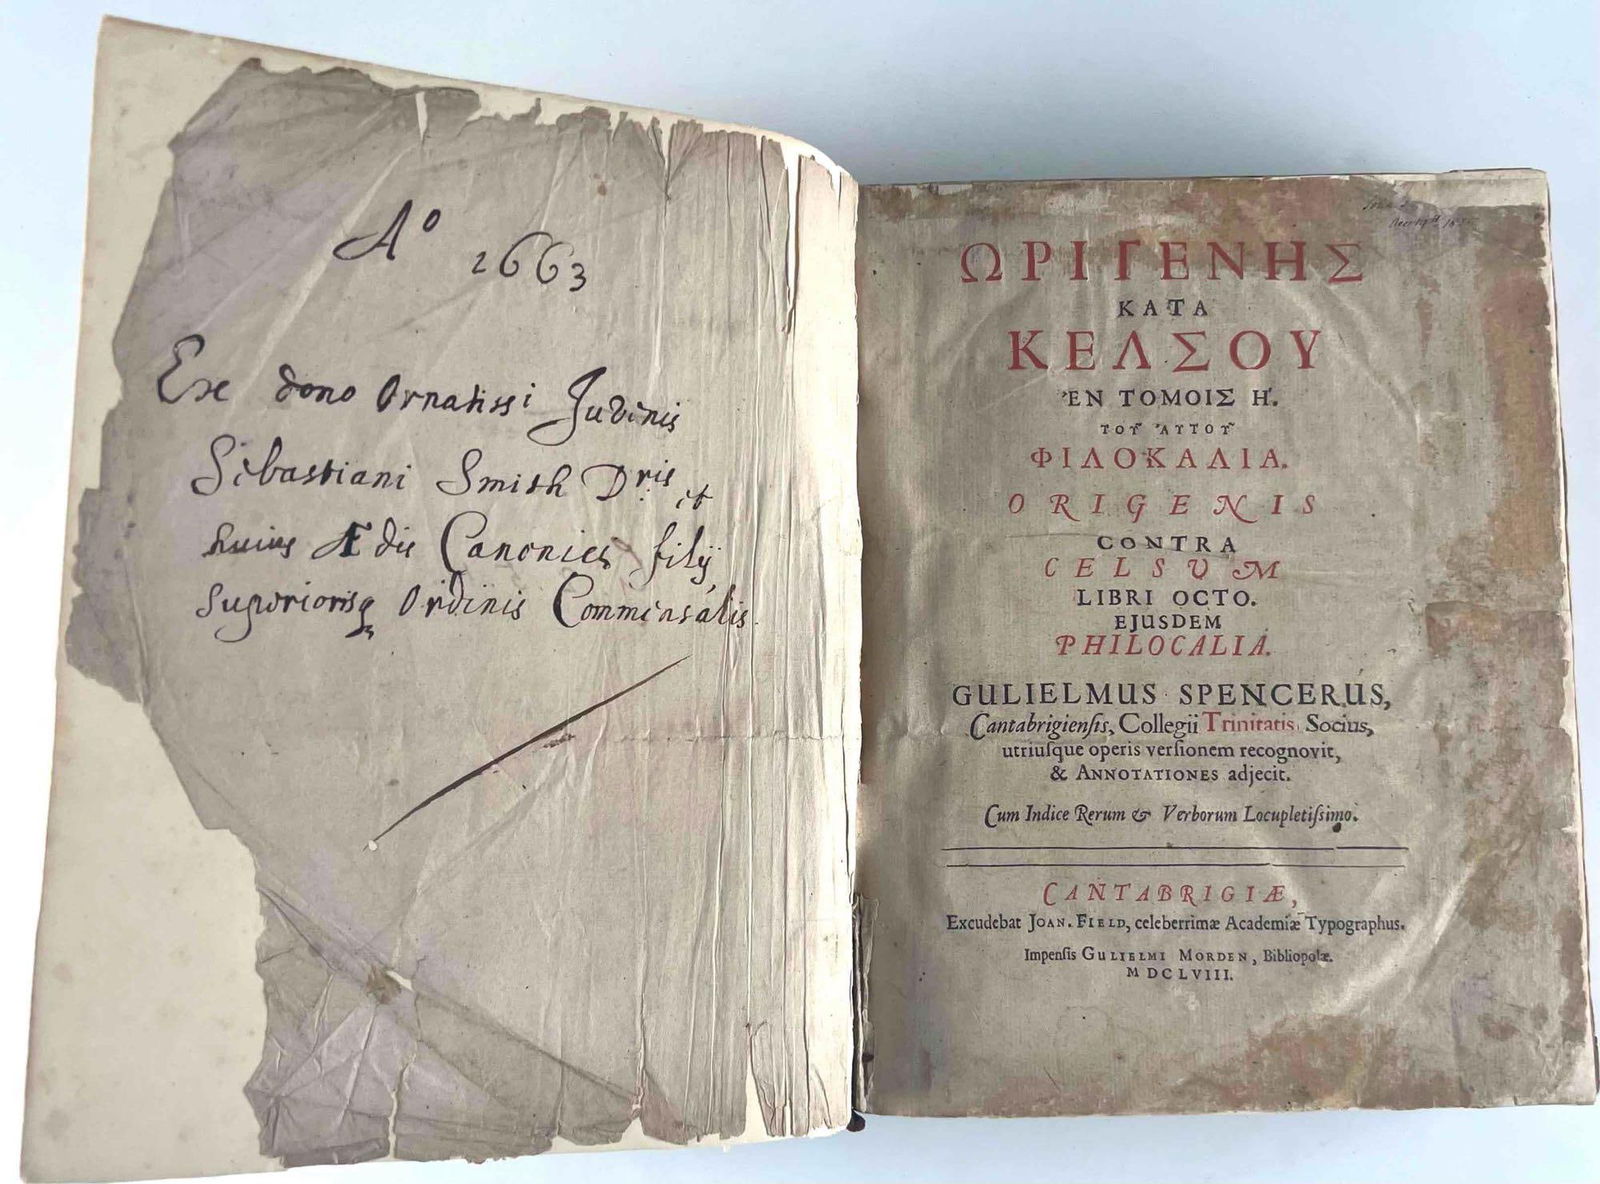 Aº
1663
Exe dono Ornatissi Juvenis
Sebastiani Smith Dris et
huius Ædis Canonici filij
Superiorisq Ordinis Commensalis.
ΩΡΙΓΕΝΗΣ
ΚΑΤΑ
ΚΕΛΣΟΥ
ἘΝ ΤΟΜΟΙΣ Η΄.
ΤΟΥ͂ ἈΥΤΟΥ͂
ΦΙΛΟΚΑΛΙΑ.
ORIGENIS
CONTRA
CELSUM
LIBRI OCTO.
EJUSDEM
PHILOCALIA.
GULIELMUS SPENCERUS,
Cantabrigienſis, Collegii Trinitatis Socius,
utriuſque operis verſionem recognovit,
& ANNOTATIONES adjecit.
Cum Indice Rerum & Verborum Locupletiſsimo.
CANTABRIGIÆ,
Excudebat JOAN. FIELD, celeberrimæ Academiæ Typographus.
Impenſis GULIELMI MORDEN, Bibliopolæ.
MDCLVIII.